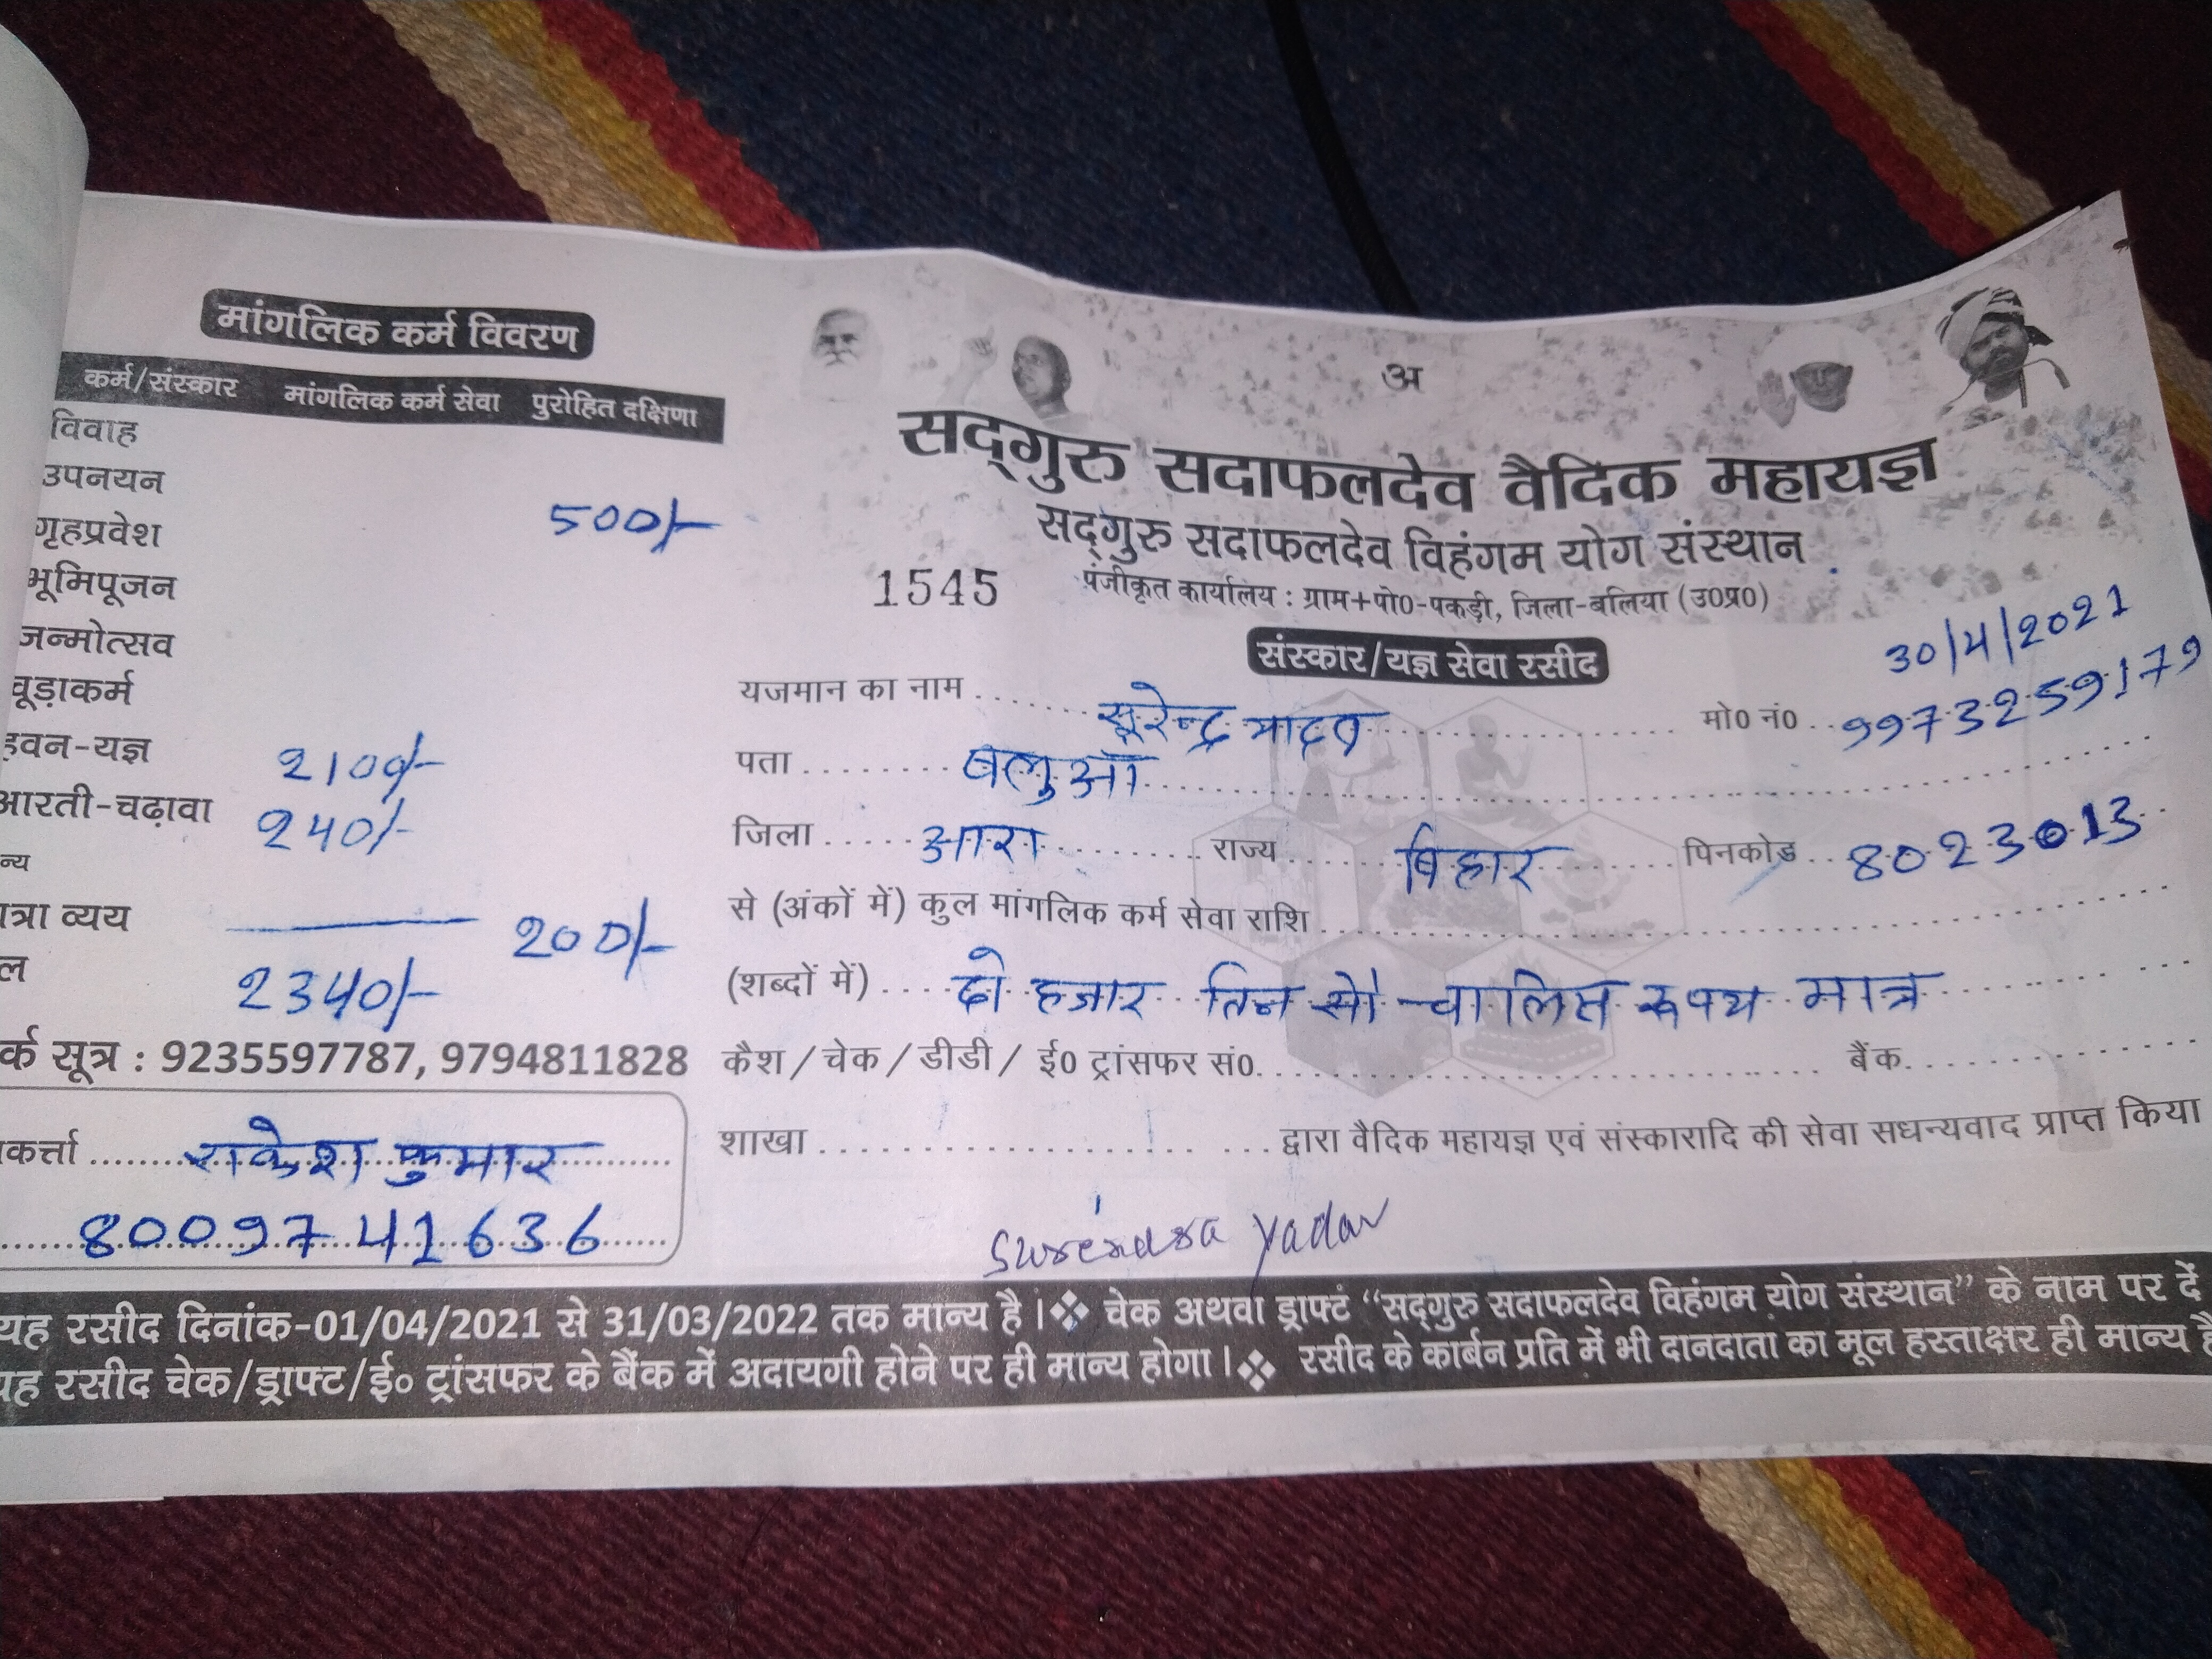 मांगलिक कर्म विवरण
कर्म/संस्कार मांगलिक कर्म सेवा पुरोहित दक्षिणा
विवाह
उपनयन
500/-
गृहप्रवेश
भूमिपूजन
जन्मोत्सव
चूड़ाकर्म
हवन-यज्ञ 2100/-
आरती-चढ़ावा 240/-
न्य
ात्रा व्यय 200/-
ल 2340/-
र्क सूत्र : 9235597787, 9794811828
कर्त्ता राकेश कुमार
8009741636
अ
सद्गुरु सदाफलदेव वैदिक महायज्ञ
सद्गुरु सदाफलदेव विहंगम योग संस्थान
1545 पंजीकृत कार्यालय : ग्राम+पो0-पकड़ी, जिला-बलिया (उ0प्र0)
30/4/2021
संस्कार/यज्ञ सेवा रसीद
यजमान का नाम सुरेन्द्र यादव मो0 नं0 9973259179
पता बलुआँ
जिला आरा राज्य बिहार पिनकोड 8023013
से (अंकों में) कुल मांगलिक कर्म सेवा राशि
(शब्दों में) दो हजार तिन सौ चालिस रूपय मात्र
कैश/चेक/डीडी/ ई0 ट्रांसफर सं0 बैंक
शाखा द्वारा वैदिक महायज्ञ एवं संस्कारादि की सेवा सधन्यवाद प्राप्त किया
Surendra Yadav
यह रसीद दिनांक-01/04/2021 से 31/03/2022 तक मान्य है। ❖ चेक अथवा ड्राफ्ट “सद्गुरु सदाफलदेव विहंगम योग संस्थान” के नाम पर दें
यह रसीद चेक/ड्राफ्ट/ई० ट्रांसफर के बैंक में अदायगी होने पर ही मान्य होगा। ❖ रसीद के कार्बन प्रति में भी दानदाता का मूल हस्ताक्षर ही मान्य है